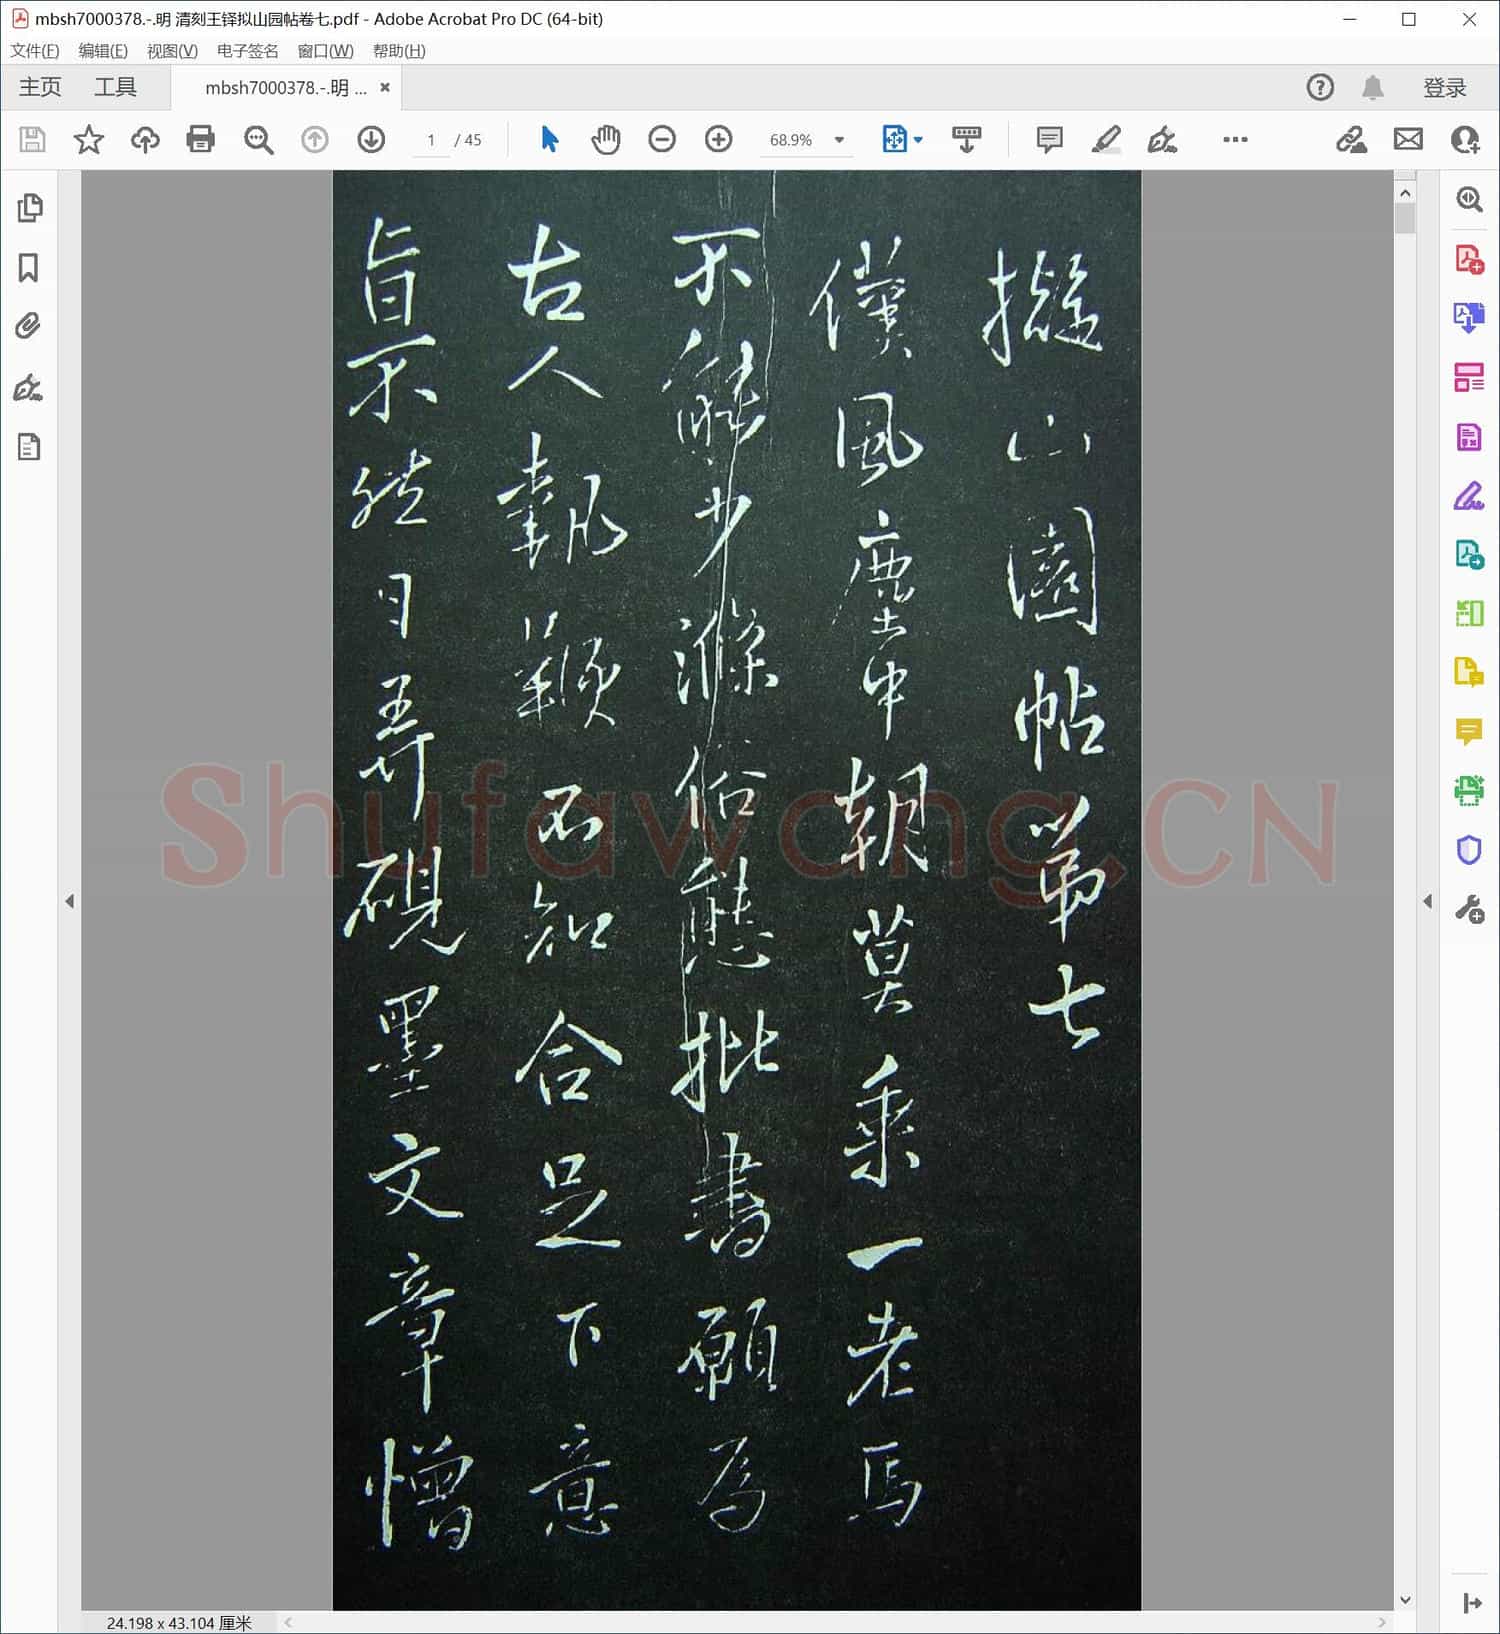 mbsh7000378.-.明 清刻王铎拟山园帖卷七.pdf - Adobe Acrobat Pro DC (64-bit)
文件(F) 编辑(E) 视图(V) 电子签名 窗口(W) 帮助(H)
主页 工具 mbsh7000378.-.明 ... 登录
1 / 45 68.9%
擬山園帖第七
僕風塵中朝莫乘一老馬
不能少滌俗態批書願為
古人執鞭不知合足下意
旨不然日弄硯墨文章憎
Shufawang.CN
24.198 x 43.104 厘米